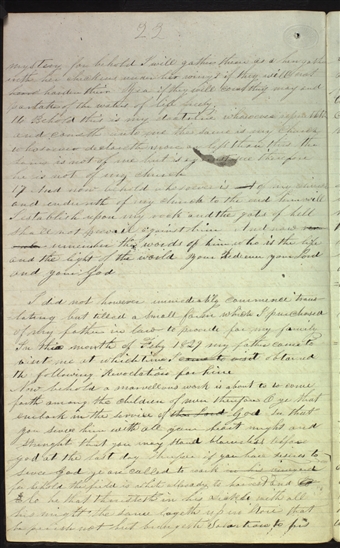 22
mystery for behold I will gather them as a hen gather
eth her chickens under her wings if they will not
harden their Yea if they will come they may and
partake of the waters of life freely
16 Behold this is my doctrine whosoever repenteth
and cometh unto me the same is my church
whosoever declareth more or less than this the
same is not of me but is against me therefore
he is not of my church
17 And now behold whosoever is of my church
and endureth of my church to the end him will
I establish upon my rock and the gates of hell
shall not prevail against him And now
remember the words of him who is the life
and the light of the world your Redeemer your Lord
and your God
I did not however immediately commence trans
lating but tilled a small farm which I purchased
of my father in law to provide for my family
In the month of Feby 1829 my father came to
visit me at which time I came to visit obtained
the following Revelation for him
Now behold a marvellous work is about to come
forth among the children of men therefore O ye that
embark in the service of the Lord God see that
you serve him with all your heart might and
strength that you may stand blameless before
God at the last day Therefore if you have desires to
serve God ye are called to the work
for behold the field is white already to harvest and
lo he that thrusteth in his sickle with all
his might the same layeth up in store that
he perish not but bringeth Salvation to his